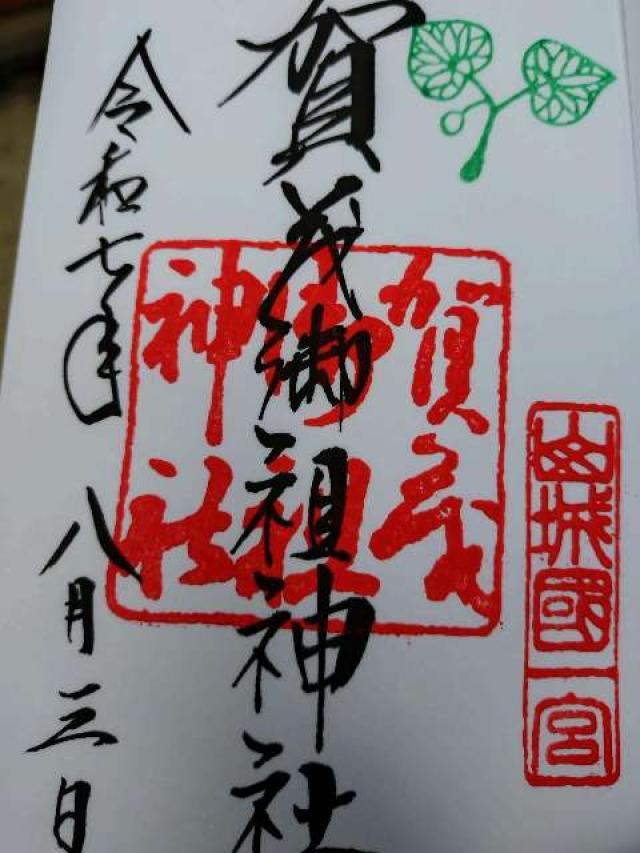 山城國一宮
賀茂御祖神社
賀茂
御祖
神社
令和七年八月三日